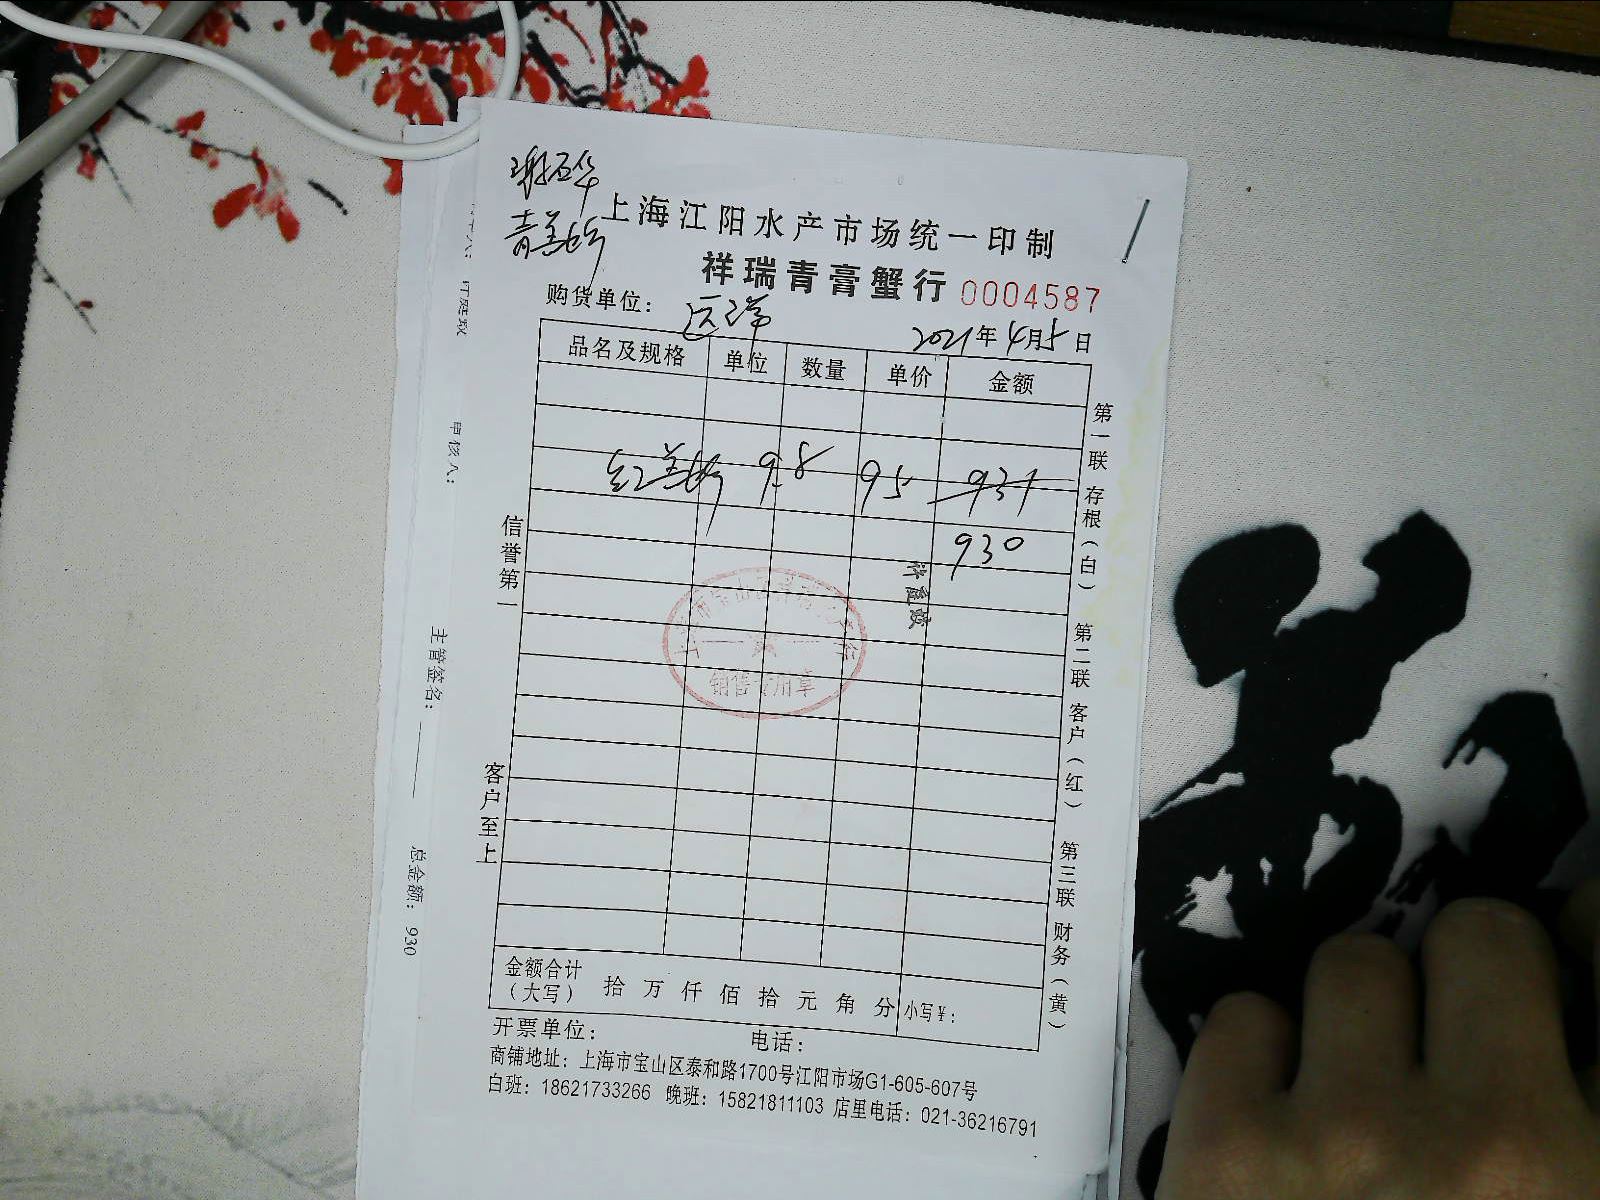 上海江阳水产市场统一印制
祥瑞青膏蟹行 0004587
购货单位： 远洋
2021年4月5日
品名及规格 单位 数量 单价 金额
9.8 95 931
930
信誉第一
客户至上
第一联 存根（白） 第二联 客户（红） 第三联 财务（黄）
销售专用章
金额合计（大写） 拾 万 仟 佰 拾 元 角 分 小写￥：
开票单位： 电话：
商铺地址：上海市宝山区泰和路1700号江阳市场G1-605-607号
白班：18621733266 晚班：15821811103 店里电话：021-36216791
审核人：
主管签名：
总金额：930